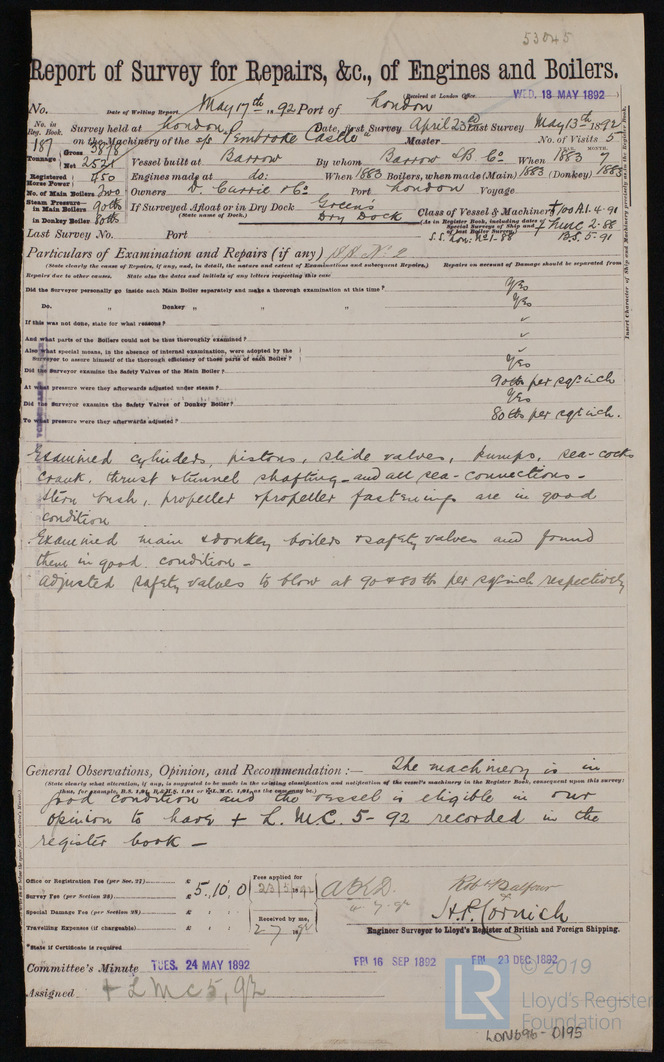 53045
Report of Survey for Repairs, &c., of Engines and Boilers.
(Received at London Office WED. 18 MAY 1892)
No. Date of Writing Report May 17th 1892 Port of London
No. in Reg. Book. 187 Survey held at London Date, first Survey April 23rd Last Survey May 13th 1892
on the Machinery of the s/s "Pembroke Castle" Master No. of Visits 5
Tonnage Gross 3878 Net 2521 Vessel built at Barrow By whom Barrow SB Co. When 1883 7
YEAR. MONTH.
Registered Horse Power 450 Engines made at do: When 1883 Boilers, when made (Main) 1883 (Donkey) 1883
No. of Main Boilers Two Owners D. Currie & Co Port London Voyage
Steam Pressure in Main Boilers 90 lbs If Surveyed Afloat or in Dry Dock Green's Dry Dock
in Donkey Boiler 80 lbs (State name of Dock.)
Class of Vessel & Machinery +100A1. 4-91
(As in Register Book, including dates of Special Surveys of Ship and of last Boiler Survey.) + LMC 2.88
S.S. Lon: No1-88 B.S. 5-91
Last Survey No. Port
Particulars of Examination and Repairs (if any) SS No 2
(State clearly the cause of Repairs, if any, and, in detail, the nature and extent of Examinations and subsequent Repairs.) Repairs on account of Damage should be separated from
Repairs due to other causes. State also the dates and initials of any letters respecting this case
Insert Character of Ship and Machinery precisely as in the Register Book.
Did the Surveyor personally go inside each Main Boiler separately and make a thorough examination at this time? Yes
Do. " Donkey " " " Yes
If this was not done, state for what reasons?
And what parts of the Boilers could not be thus thoroughly examined?
Also what special means, in the absence of internal examination, were adopted by the
Surveyor to assure himself of the thorough efficiency of those parts of each Boiler?
Did the Surveyor examine the Safety Valves of the Main Boiler? Yes
At what pressure were they afterwards adjusted under steam? 90 lbs per sq: inch
Did the Surveyor examine the Safety Valves of Donkey Boiler? Yes
To what pressure were they afterwards adjusted? 80 lbs per sq: inch.
Examined cylinders, pistons, slide valves, pumps, sea-cocks
crank, thrust & tunnel shafting - and all sea-connections -
Stern bush, propeller & propeller fastenings are in good
condition
Examined main & donkey boilers & safety valves and found
them in good condition -
Adjusted safety valves to blow at 90 & 80 lbs per sq: inch respectively
General Observations, Opinion, and Recommendation:— The machinery is in
(State clearly what alteration, if any, is suggested to be made in the existing classification and notification of the vessel's machinery in the Register Book, consequent upon this survey:
thus, for example, B.S. 1,91, B.&M.S. 1,91 or +L.M.C. 1,91, as the case may be.)
good condition and the vessel is eligible in our
opinion to have + L.M.C. 5-92 recorded in the
register book -
Office or Registration Fee (per Sec. 27) £ : :
Survey Fee (per Section 28) £ 5 , 10 , 0
Special Damage Fee (per Section 28) £ : :
Travelling Expenses (if chargeable) £ : :
Fees applied for
Received by me,
Robt Balfour
H.P. Cornish
Engineer Surveyor to Lloyd's Register of British and Foreign Shipping.
*State if Certificate is required
Committee's Minute TUES. 24 MAY 1892 FRI 16 SEP 1892 FRI 23 DEC 1892
Assigned + LMC 5,92
LR © 2019
Lloyd's Register
Foundation
LON696-0195